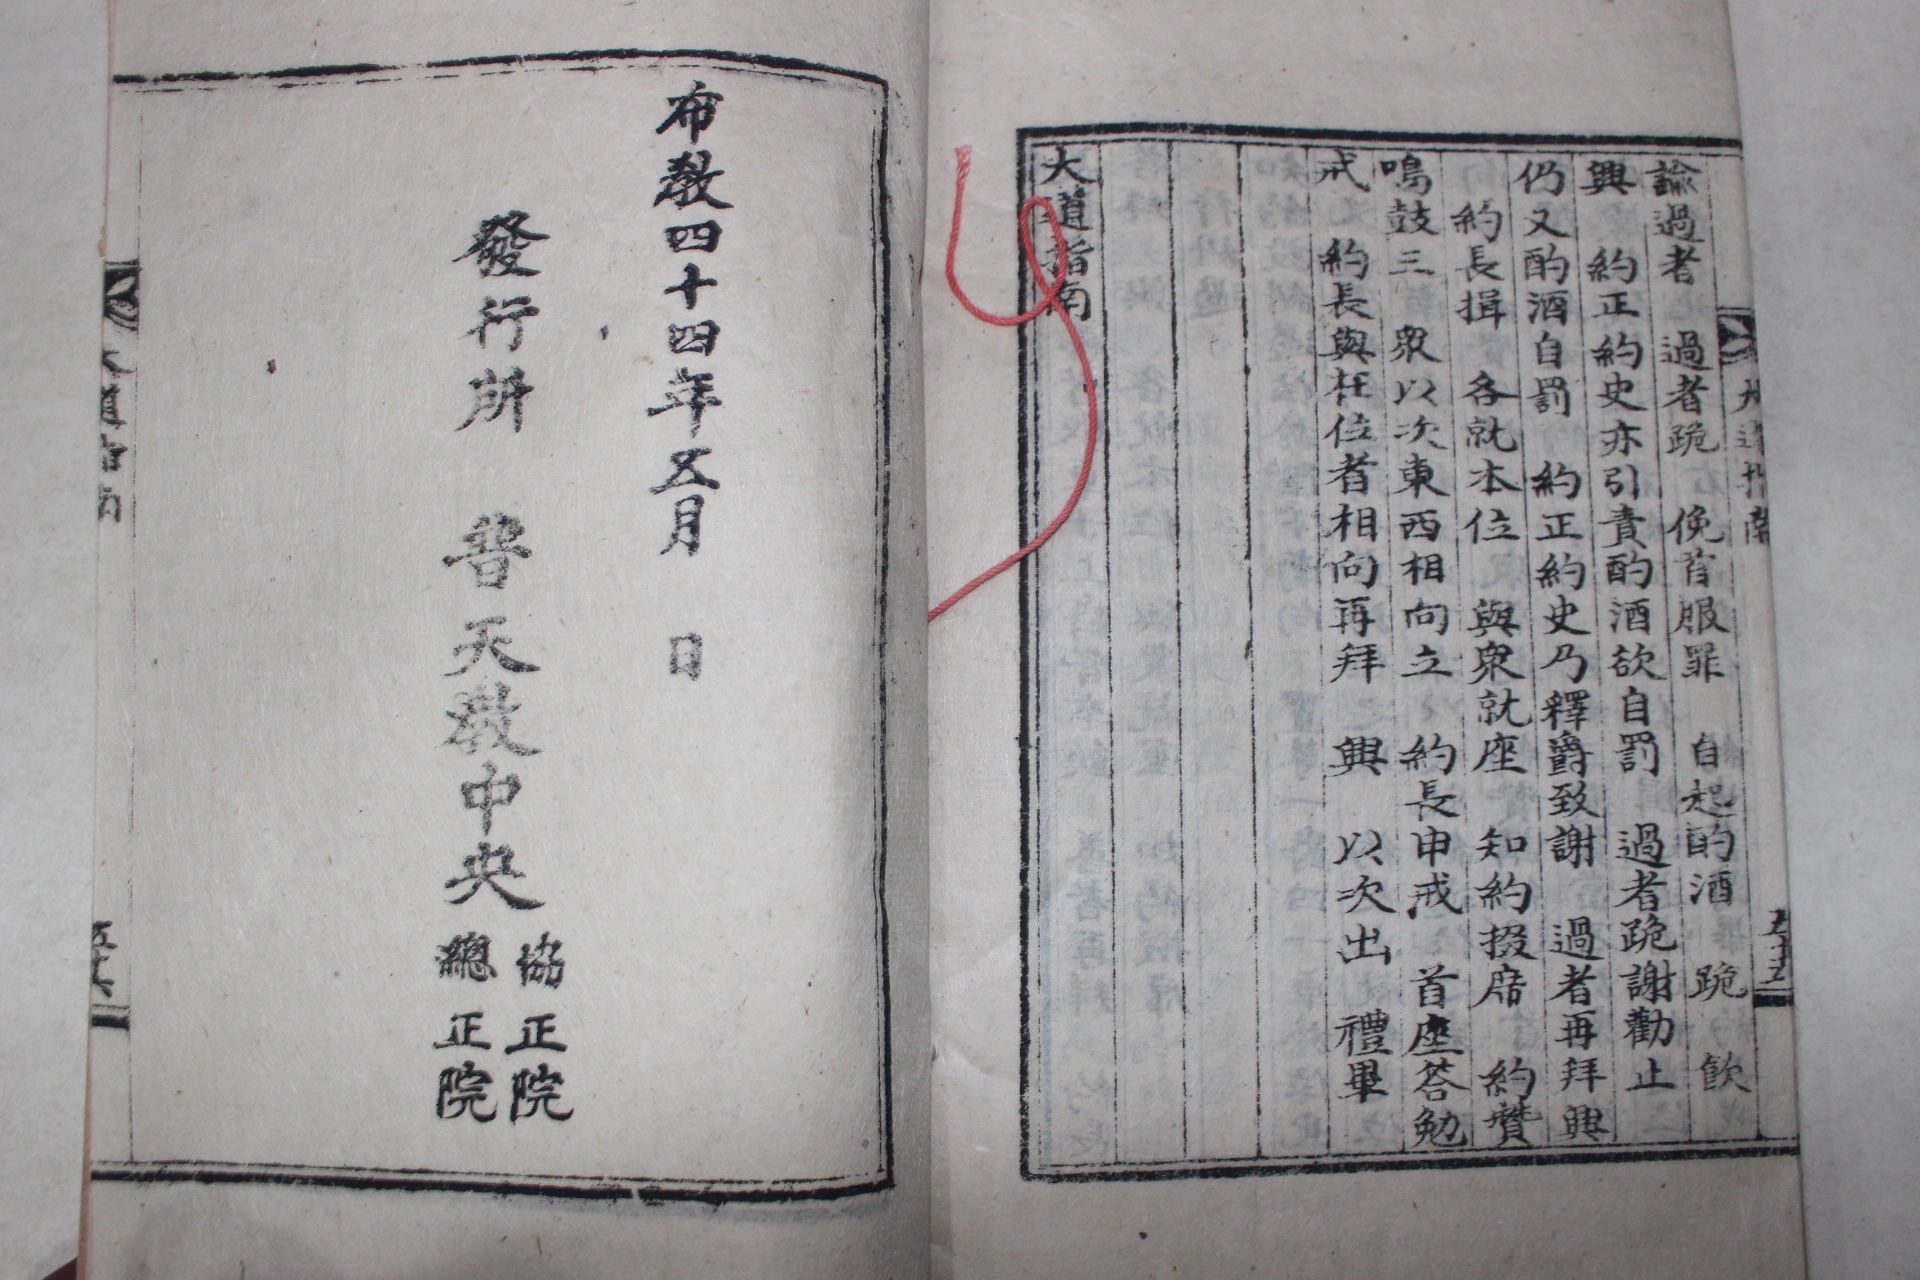 大道指南
五十五
諭過者　過者跪　俛首服罪　自起酌酒　跪　飮
興　約正約史亦引責酌酒欲自罰　過者跪謝勸止
仍又酌酒自罰　約正約史乃釋爵致謝　過者再拜興
約長揖　各就本位　與衆就座　知約掇席　約贊
鳴鼓三　衆以次東西相向立　約長申戒　首座答勉
戒　約長與在位者相向再拜　興　以次出　禮畢
大道指南
布敎四十四年五月　日
發行所　普天敎中央
協正院
總正院
大道指南
五十六